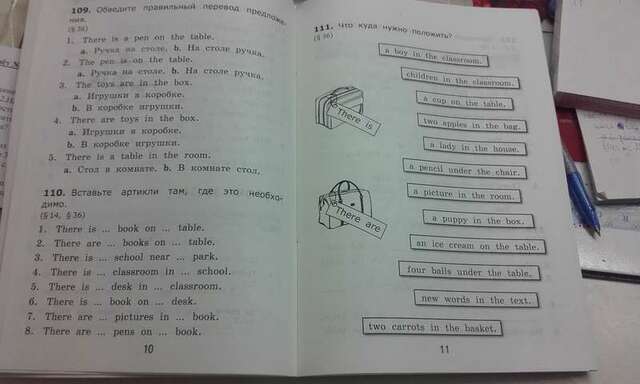 109. Обведите правильный перевод предложе-
ния.
(§ 36)
1. There is a pen on the table.
a. Ручка на столе. b. На столе ручка.
2. The pen is on the table.
a. Ручка на столе. b. На столе ручка.
3. The toys are in the box.
a. Игрушки в коробке.
b. В коробке игрушки.
4. There are toys in the box.
a. Игрушки в коробке.
b. В коробке игрушки.
5. There is a table in the room.
a. Стол в комнате. b. В комнате стол.
110. Вставьте артикли там, где это необхо-
димо.
(§ 14, § 36)
1. There is ... book on ... table.
2. There are ... books on ... table.
3. There is ... school near ... park.
4. There is ... classroom in ... school.
5. There is ... desk in ... classroom.
6. There is ... book on ... desk.
7. There are ... pictures in ... book.
8. There are ... pens on ... book.
10
111. Что куда нужно положить?
(§ 36)
There is
There are
a boy in the classroom.
children in the classroom.
a cup on the table.
two apples in the bag.
a lady in the house.
a pencil under the chair.
a picture in the room.
a puppy in the box.
an ice cream on the table.
four balls under the table.
new words in the text.
two carrots in the basket.
11